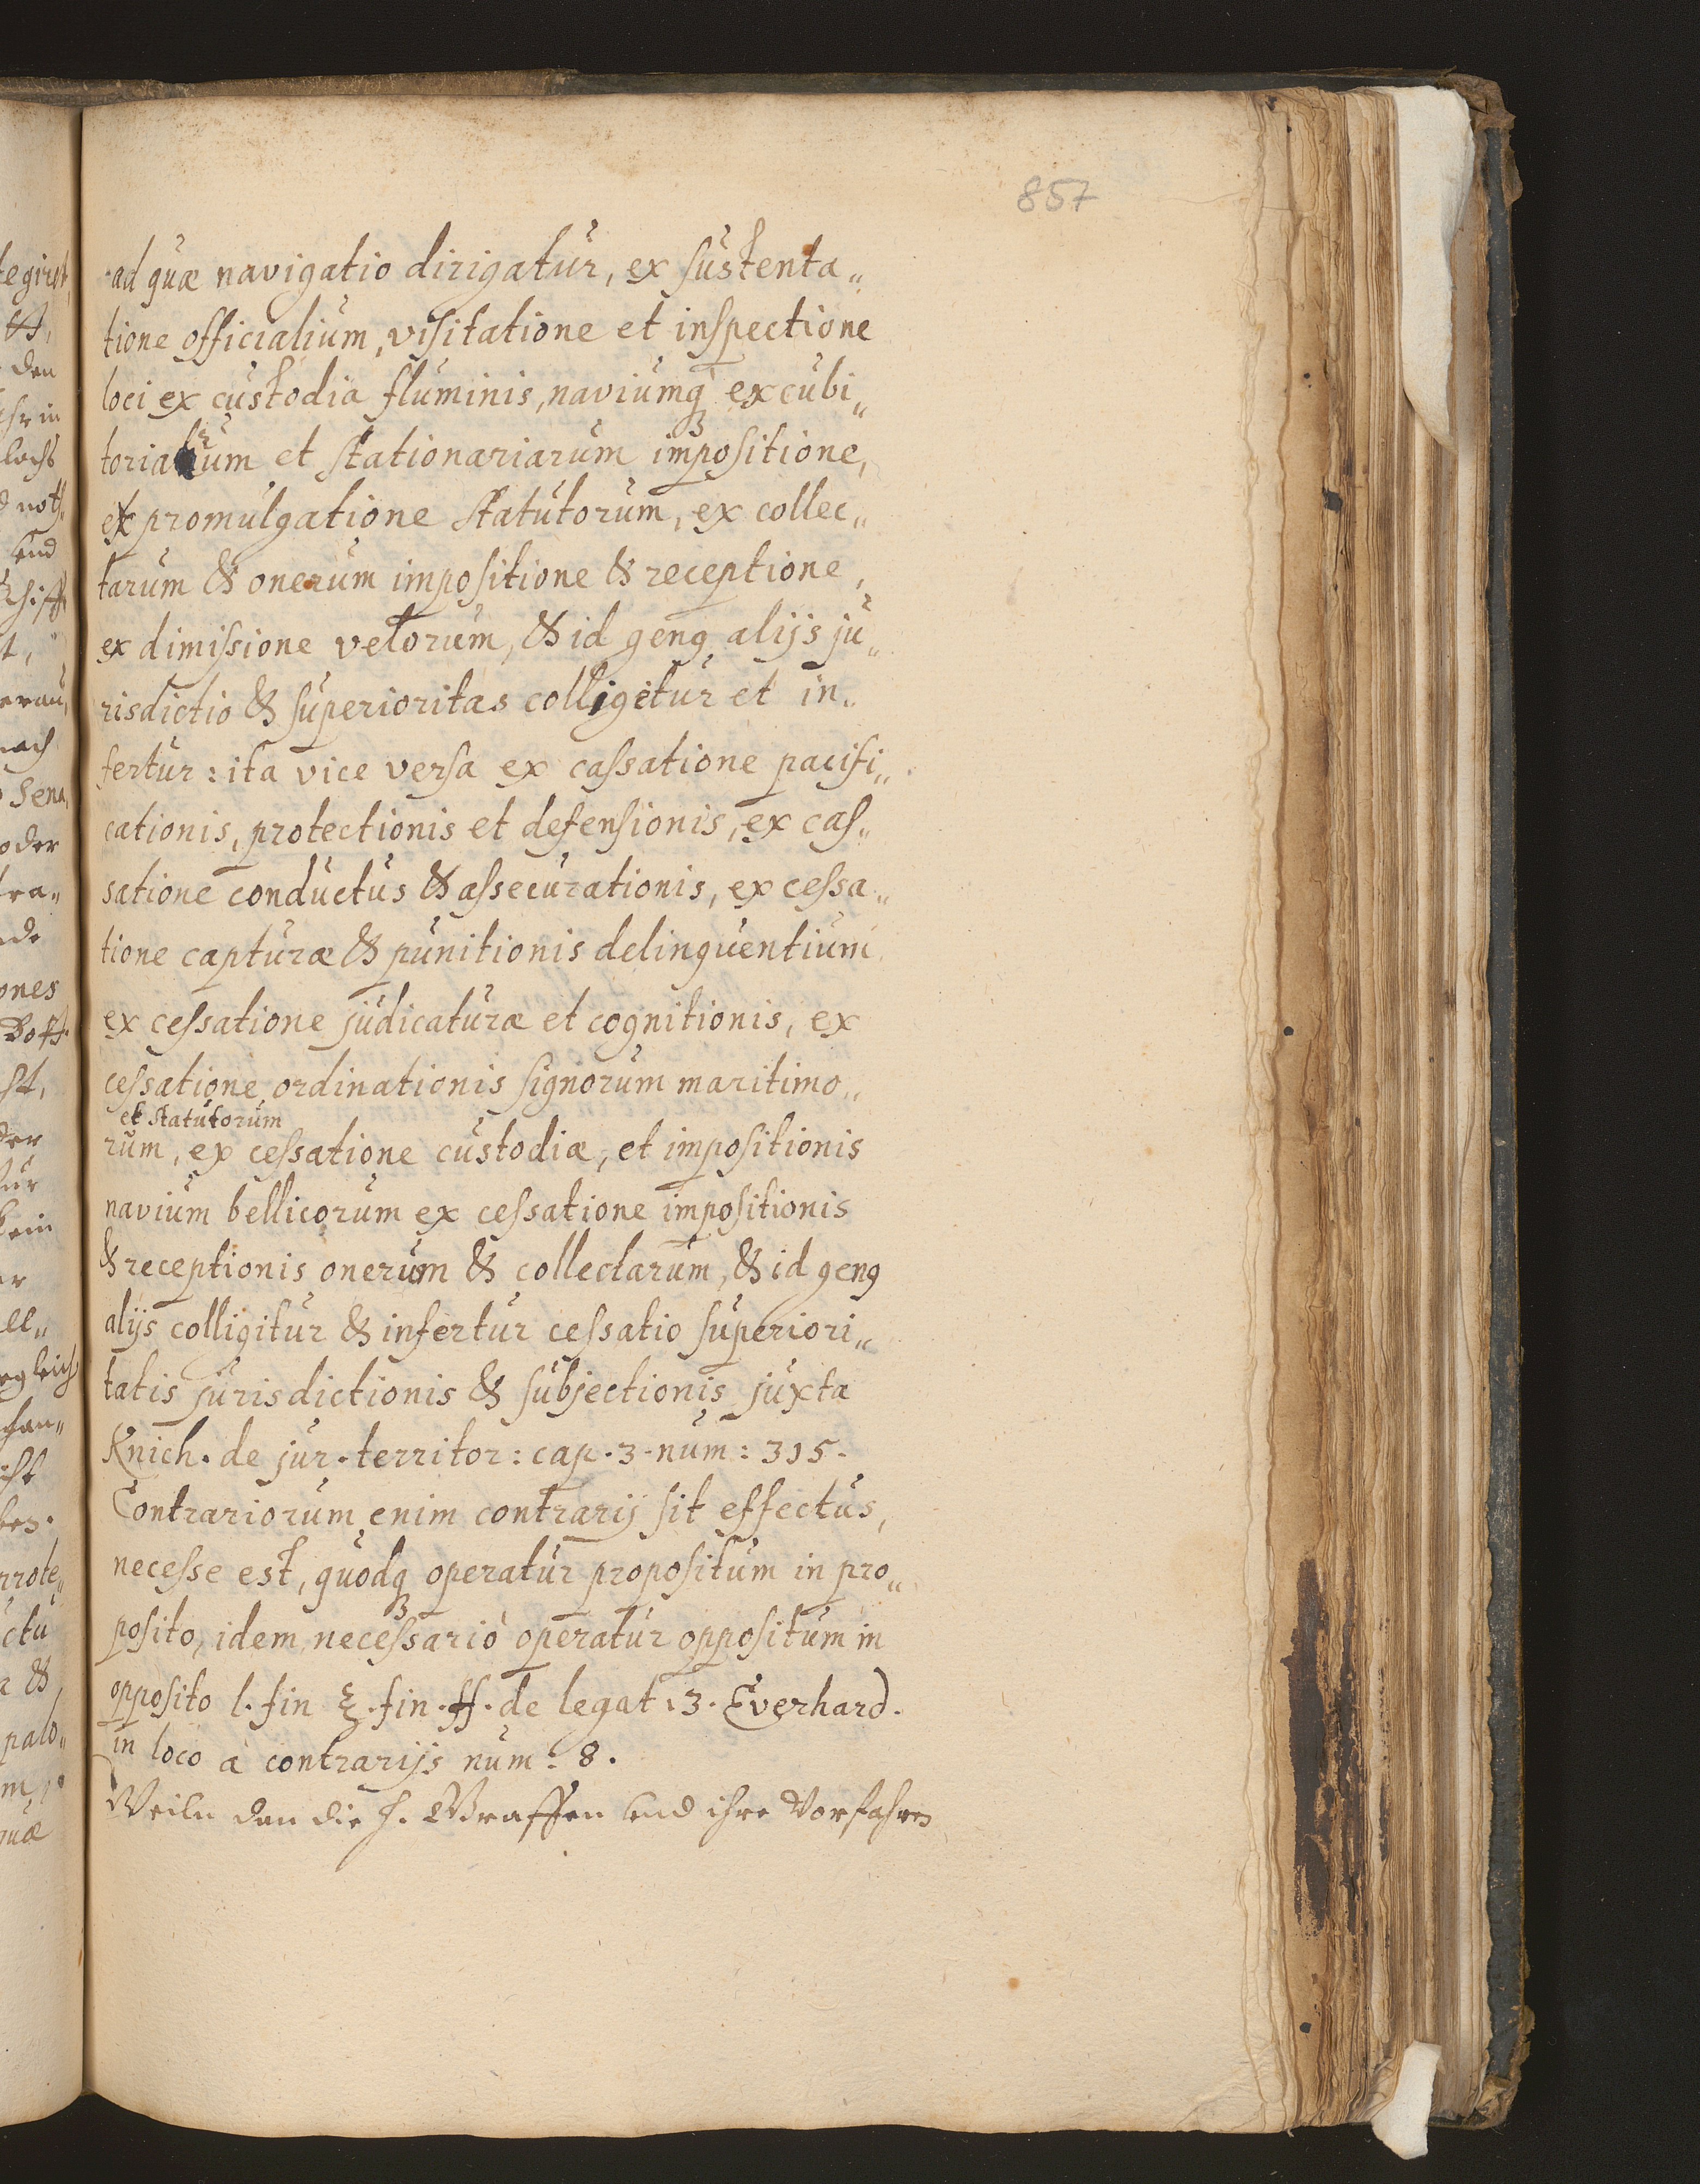 857
ad quæ navigatio dirigatur, ex sustenta„
tione officialium, visitatione et inspectione
loci ex custodia fluminis, naviumq; excubi„
toriarum et stationariarum impositione,
ex promulgatione statutorum, ex collec„
tarum & onerum impositione & receptione,
ex dimissione velorum, & id geng alijs ju„
risdictio & superioritas colligitur et in„
fertur: ita vice versa ex cassatione pacifi„
cationis, protectionis et defensionis, ex cas„
satione conductus & assecurationis, ex cessa„
tione capturæ & punitionis delinquentium
ex cessatione judicaturæ et cognitionis, ex
cessatione ordinationis signorum maritimo„
et statutorum
rum, ex cessatione custodiæ, et impositionis
navium bellicorum ex cessatione impositionis
& receptionis onerum & collectarum, & id geng
alijs colligitur & infertur cessatio superiori„
tatis jurisdictionis & subjectionis juxta
Knich. de jur. territor: cap. 3. num: 315.
Contrariorum enim contrarij sit effectus,
necesse est, quodq; operatur propositum in pro„
posito, idem necessariò operatur oppositum in
opposito l. fin §. fin. ff. de legat. 3. Everhard.
in loco à contrarijs num: 8.
Weiln dan die H. Graffen und ihre Vorfahren